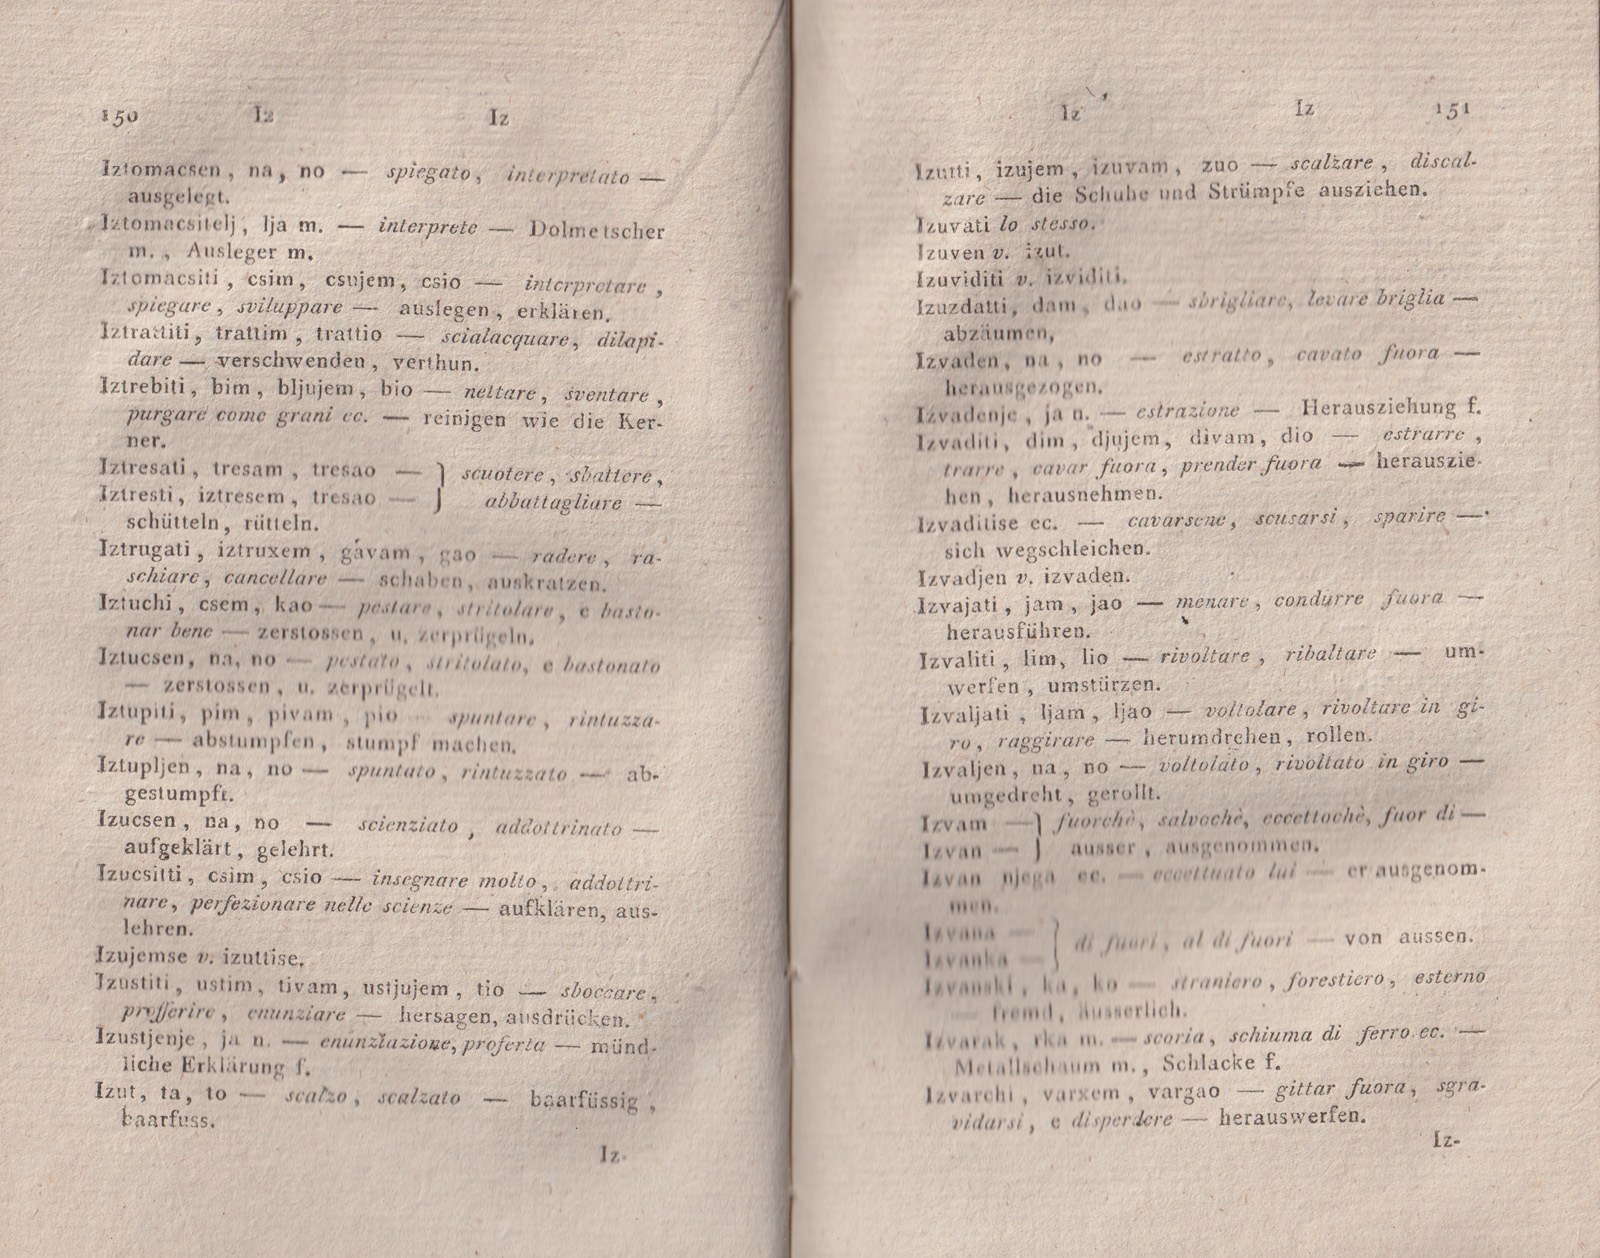 150 Iz Iz
Iztomacsen, na, no — spiegato, interpretato —
ausgelegt.
Iztomacsitelj, lja m. — interprete — Dolmetscher
m., Ausleger m.
Iztomacsiti, csim, csujem, csio — interpretare,
spiegare, sviluppare — auslegen, erklären.
Iztrattiti, trattim, trattio — scialacquare, dilapi-
dare — verschwenden, verthun.
Iztrebiti, bim, bljujem, bio — nettare, sventare,
purgare come grani ec. — reinigen wie die Ker-
ner.
Iztresati, tresam, tresao — } scuotere, sbattere,
Iztresti, iztresem, tresao — } abbattagliare —
schütteln, rütteln.
Iztrugati, iztruxem, gávam, gao — radere, ra-
schiare, cancellare — schaben, auskratzen.
Iztuchi, csem, kao — pestare, stritolare, e basto-
nar bene — zerstossen, u. zerprügeln.
Iztucsen, na, no — pestato, stritolato, e bastonato
— zerstossen, u. zerprügelt.
Iztupiti, pim, pivam, pio — spuntare, rintuzza-
re — abstumpfen, stumpf machen.
Iztupljen, na, no — spuntato, rintuzzato — ab-
gestumpft.
Izucsen, na, no — scienziato, addottrinato —
aufgeklärt, gelehrt.
Izucsitti, csim, csio — insegnare molto, addottri-
nare, perfezionare nelle scienze — aufklären, aus-
lehren.
Izujemse v. izuttise.
Izustiti, ustim, tivam, ustjujem, tio — sboccare,
profferire, enunziare — hersagen, ausdrücken.
Izustjenje, ja n. — enunziazione, proferta — münd-
liche Erklärung f.
Izut, ta, to — scalzo, scalzato — baarfüssig,
baarfuss.
Iz-
Iz Iz 151
Izutti, izujem, izuvam, zuo — scalzare, discal-
zare — die Schuhe und Strümpfe ausziehen.
Izuvati lo stesso.
Izuven v. izut.
Izuviditi v. izviditi.
Izuzdatti, dam, dao — sbrigliare, levare briglia —
abzäumen,
Izvaden, na, no — estratto, cavato fuora —
herausgezogen.
Izvadenje, ja n. — estrazione — Herausziehung f.
Izvaditi, dim, djujem, divam, dio — estrarre,
trarre, cavar fuora, prender fuora — herauszie-
hen, herausnehmen.
Izvaditise ec. — cavarsene, scusarsi, sparire —
sich wegschleichen.
Izvadjen v. izvaden.
Izvajati, jam, jao — menare, condurre fuora —
herausführen.
Izvaliti, lim, lio — rivoltare, ribaltare — um-
werfen, umstürzen.
Izvaljati, ljam, ljao — voltolare, rivoltare in gi-
ro, raggirare — herumdrehen, rollen.
Izvaljen, na, no — voltolato, rivoltato in giro —
umgedreht, gerollt.
Izvam — } fuorchè, salvochè, eccettochè, fuor di —
Izvan — } ausser, ausgenommen.
Izvan njega ec. — eccettuato lui — er ausgenom-
men.
Izvana — } di fuori, al di fuori — von aussen.
Izvanka — }
Izvanski, ka, ko — straniero, forestiero, esterno
— fremd, äusserlich.
Izvarak, rka m. — scoria, schiuma di ferro ec. —
Metallschaum m., Schlacke f.
Izvarchi, varxem, vargao — gittar fuora, sgra-
vidarsi, e disperdere — herauswerfen.
Iz-